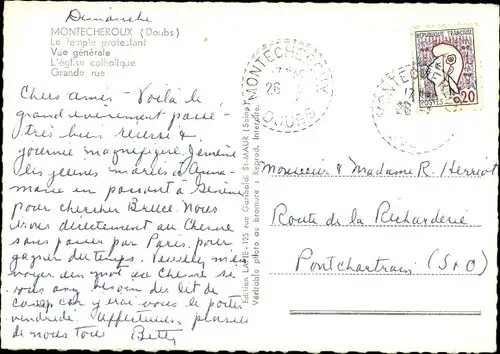 Dimanche
MONTECHEROUX (Doubs)
Le temple protestant
Vue générale
L'église catholique
Grande rue
Chers amis - Voilà le
grand evenement passé
très bien réussi &
journée magnifique. J'emmène
les jeunes mariés & Anna-
marie en passant à Genève
pour chercher Bruce. Nous
irons directement au Chesne
sans passer par Paris pour
gagner du temps. Veuillez m'en-
voyer un mot au Chesne si
vous avez besoin du lit de
camp car j'irai vous le porter
vendredi. Affectueuses pensées
de nous tous Betty
Edition LAPIE - 125 rue Garibaldi St-MAUR (Seine)
Véritable photo au bromure : Reprod. Interdite.
MONTECHEROUX
26
DOUBS
MONTECHEROUX
26
REPUBLIQUE FRANÇAISE
POSTES
0,20
Monsieur & Madame R. Herriot
Route de la Richarderie
Pontchartrain (S & O)